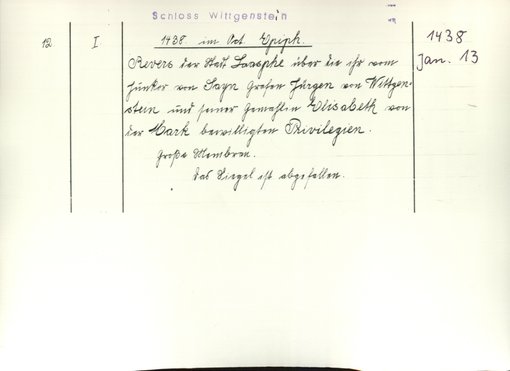 Schloss Wittgenstein
12 I 1438. im Oct. Epiph. 1438
Jan. 13
Revers der Stadt Laasphe über die ihr vom
Junker von Sayn Grafen Jürgen von Wittgen-
stein und seiner Gemahlin Elisabeth von
der Mark bewilligten Privilegien.
Große Membran.
Das Siegel ist abgefallen.